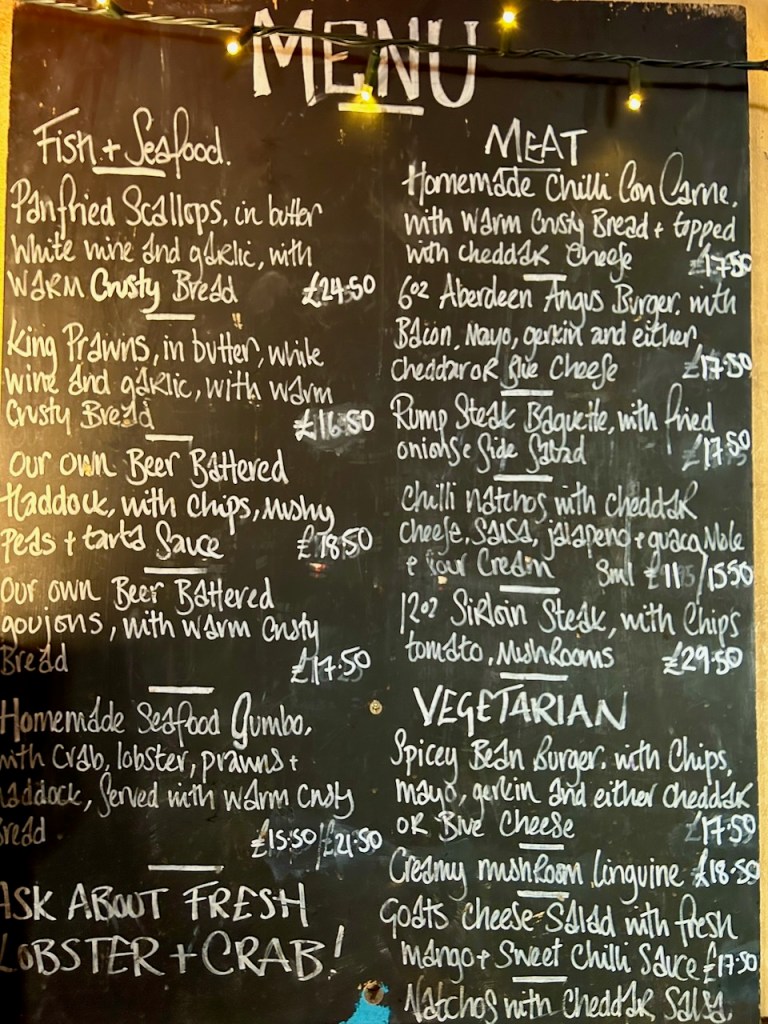 MENU
Fish + Seafood.
Panfried Scallops, in butter
white wine and garlic, with
WARM Crusty Bread £24.50
King Prawns, in butter, white
wine and garlic, with warm
Crusty Bread £16.50
Our own Beer Battered
Haddock, with Chips, Mushy
Peas + tarta Sauce £18.50
Our own Beer Battered
goujons, with warm Crusty
Bread £17.50
Homemade Seafood Gumbo,
with Crab, lobster, prawns +
haddock, served with warm Crusty
Bread £15.50/£21.50
ASK ABOUT FRESH
LOBSTER + CRAB!
MEAT
Homemade Chilli Con Carne,
with warm Crusty Bread + topped
with cheddar Cheese £17.50
6oz Aberdeen Angus Burger, with
Bacon, Mayo, gerkin and either
cheddar or Blue Cheese £17.50
Rump Steak Baguette, with fried
onions & Side Salad £17.50
Chilli natchos with cheddar
cheese, Salsa, jalapeno + guacaMole
+ Sour Cream Sml £11 /15.50
12oz Sirloin Steak, with Chips
tomato, MushRooms £29.50
VEGETARIAN
Spicey Bean Burger, with Chips,
mayo, gerkin and either cheddar
or Blue Cheese £17.50
Creamy mushRoom linguine £18.50
Goats Cheese Salad with fresh
mango + Sweet Chilli Sauce £17.50
Natchos with Cheddar, Salsa,